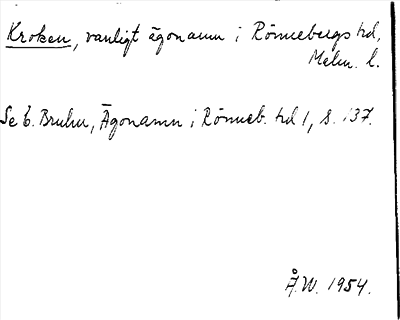 Kroken, vanligt ägonamn i Rönnebergs hd,
Malm. l.
Se B. Bruhn, Ägonamn i Rönneb. hd 1, s. 137.
Å.W. 1954.